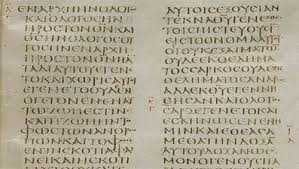 ΕΝΑΡΧΗΗΝΟΛΟΓΟϹ
ΚΑΙΟΛΟΓΟϹΗ
ΠΡΟϹΤΟΝΘΝΚΑΙ
ΘϹΗΝΟΛΟΓΟϹΟΥ
ΤΟϹΗΝΕΝΑΡΧΗ
ΠΡΟϹΤΟΝΘΝΠΑ
ΤΑΔΙΑΥΤΟΥΕΓΕΝΕ
ΤΟΚΑΙΧΩΡΙϹΑΥ
ΕΓΕΝΕΤΟΟΥΔΕΝ
ΟΓΕΓΟΝΕΝΕΝΑΥ
ΤΩΖΩΗΕϹΤΙΝ
ΚΑΙΗΖΩΗΗΝΤΟ
ΦΩϹΤΩΝΑΝΘΡΩ
ΠΩΝΚΑΙΤΟΦΩϹ
ΕΝΤΗϹΚΟΤΙΑΦΑΙ
ΝΕΙΚΑΙΗϹΚΟΤΙ
ΑΥΤΟΙϹΕΞΟΥϹΙΑΝ
ΤΕΚΝΑΘΥΓΕΝΕϹ
ΤΟΙϹΠΙϹΤΕΥΟΥϹΙ
ΕΙϹΤΟΟΝΟΜΑΑΥΤΟΥ
ΟΙΟΥΚΕΞΑΙΜΑΤΩ
ΟΥΔΕΕΚΘΕΛΗΜΑ
ΤΟϹϹΑΡΚΟϹΟΥΔΕ
ΘΕΛΗΜΑΤΟϹΑΝΔΡΟϹ
ΑΛΛΕΚΘΥΕΓΕΝΝΗ
ΘΗϹΑΝΚΑΙΟΛΟΓΟϹ
ϹΑΡΞΕΓΕΝΕΤΟΚΑΙ
ΕϹΚΗΝΩϹΕΝΕΝΗ
ΜΙΝΚΑΙΕΘΕΑϹΑ
ΜΕΘΑΤΗΝΔΟΞΑ
ΑΥΤΟΥΔΟΞΑΝΩϹ
ΜΟΝΟΓΕΝΟΥϹΠΑ